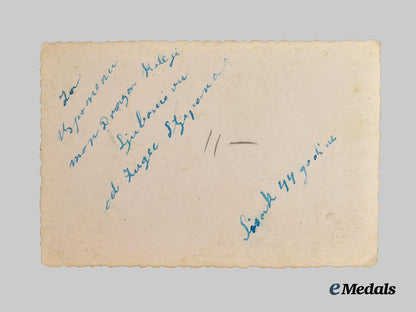 Za
Uspomenu
mom Dragom Kolegi
Ljubanović
od Zugec Stjepana
11 —
Sisak 44 godine
eMedals